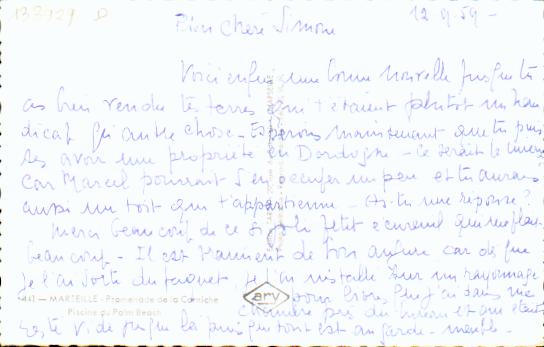 133929 D
12-9-59-
Bien Chère Simone
Voici enfin une bonne nouvelle puisque tu
as bien vendu tes terres qui t'étaient plutôt un han
dicap qu'autre chose - Espérons maintenant que tu puis
ses avoir une propriété en Dordogne - Ce serait le mieux
car Marcel pourrait s'en occuper un peu et tu aurais
aussi un toit qui t'appartienne - As-tu une réponse ?
Merci beaucoup de ce si joli petit écureuil qui me plaît
beaucoup - Il est vraiment de bon augure car dès que
je l'ai sorti du paquet je l'ai installé sur un rayonnage
pour livres que j'ai dans ma
441 — MARSEILLE - Promenade de la Corniche
Piscine du Palm Beach
ary
chambre près du bureau et qui était
resté vide puisque les bouquins sont en garde-meuble -